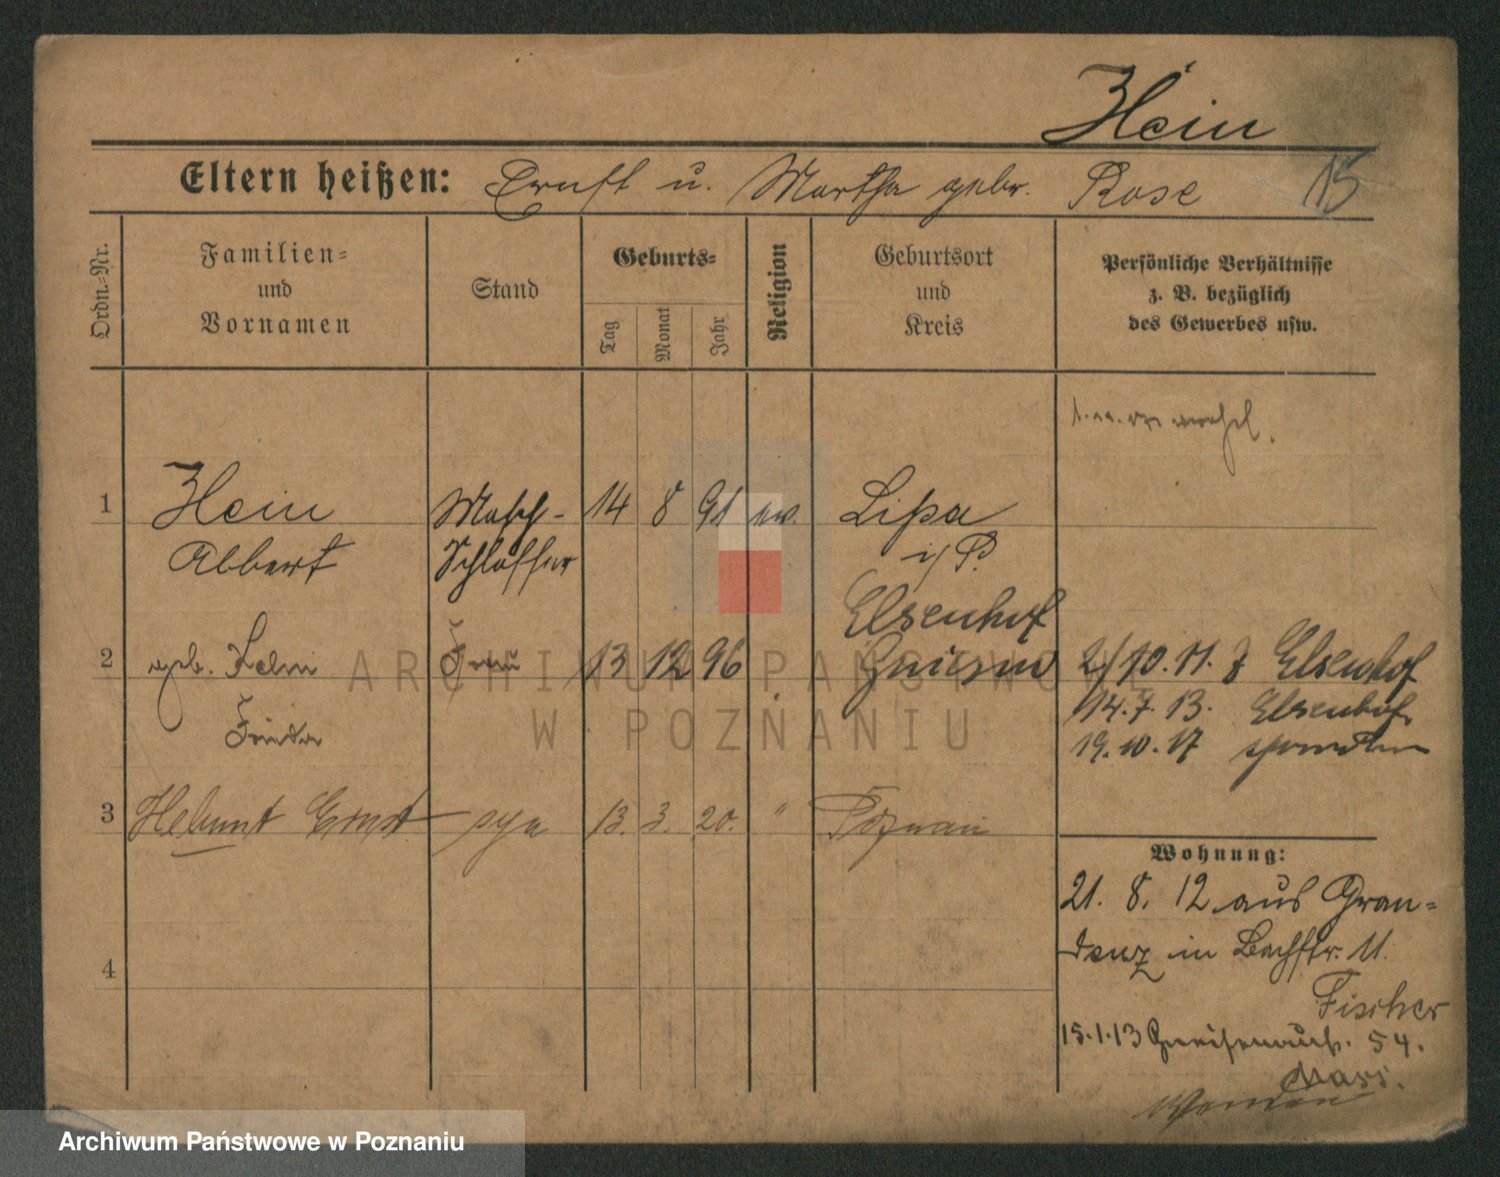 Hein
Eltern heißen: Ernst u. Martha gebr. Rose 15
Ordn.-Nr.
Familien-
und
Vornamen
Stand
Geburts-
Tag
Monat
Jahr
Religion
Geburtsort
und
Kreis
Persönliche Verhältnisse
z. B. bezüglich
des Gewerbes usw.
1 Hein Masch- 14 8 91 ev. Lissa
Albert Schlosser i/P.
Elsenhof
2 geb. Frau 13 12 96 Gnesen 2/10.11. z Elsenhof
Frieda 14.7.13. Elsenhof
19.10.17
3 Helmut Ernst 13. 3. 20. " Poznań
Wohnung:
21. 8. 12 aus Grau-
denz in Bachstr. 11.
4
Fischer
15.1.13 Gneisenaustr. 54.
ARCHIWUM PAŃSTWOWE
W POZNANIU
Archiwum Państwowe w Poznaniu